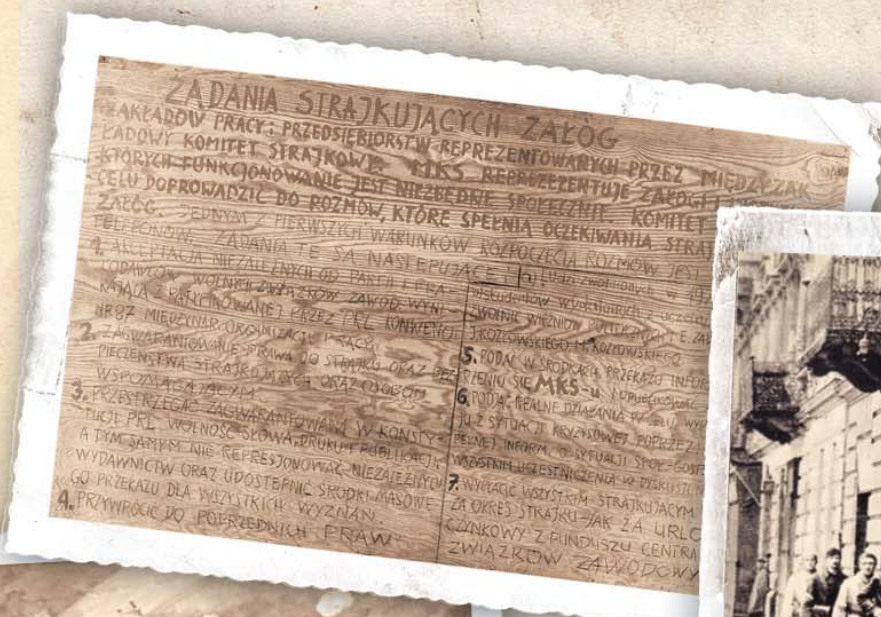 ŻĄDANIA STRAJKUJĄCYCH ZAŁÓG
ZAKŁADÓW PRACY I PRZEDSIĘBIORSTW REPREZENTOWANYCH PRZEZ MIĘDZYZAK
ŁADOWY KOMITET STRAJKOWY. MKS REPREZEZENTUJE ZAŁOGI I
KTÓRYCH FUNKCJONOWANIE JEST NIEZBĘDNE SPOŁECZNIE. KOMITET
CELU DOPROWADZIĆ DO ROZMÓW, KTÓRE SPEŁNIĄ OCZEKIWANIA STRA
ZAŁÓG. JEDNYM Z PIERWSZYCH WARUNKÓW ROZPOCZĘCIA ROZMÓW JEST
TELEFONÓW. ŻĄDANIA TE SĄ NASTĘPUJĄCE
1. AKCEPTACJA NIEZALEŻNYCH OD PARTII I PRA
CODAWCÓW WOLNYCH ZWIĄZKÓW ZAWOD. WYNI
KAJĄCA Z RATYFIKOWANEJ PRZEZ PRL KONWENCJI
NR 87 MIĘDZYNAR. ORGANIZACJI PRACY.
2. ZAGWARANTOWANIE PRAWA DO STRAJKU ORAZ BEZ
PIECZEŃSTWA STRAJKUJĄCYCH ORAZ OSOBOM
WSPOMAGAJĄCYM
3. PRZESTRZEGAĆ ZAGWARANTOWANĄ W KONSTY-
TUCJI PRL WOLNOŚĆ SŁOWA, DRUKU I PUBLIKACJI,
A TYM SAMYM NIE REPRESJONOWAĆ NIEZALEŻNYCH
WYDAWNICTW ORAZ UDOSTĘPNIĆ ŚRODKI MASOWE-
GO PRZEKAZU DLA WSZYSTKICH WYZNAŃ.
4. PRZYWRÓCIĆ DO POPRZEDNICH PRAW
a) Ludzi zwolnionych w
studentów wydalonych z uczeln
WOLNIĆ WIĘŹNIÓW POLITYCZNYCH E. ZA
J. KOZŁOWSKIEGO M. KOZŁOWSKIEGO
5. PODAĆ W ŚRODKACH PRZEKAZU INFOR
RZENIU SIĘ MKS-u I OPUBLIKOWAĆ
6. PODJĄĆ REALNE DZIAŁANIA
JU Z SYTUACJI KRYZYSOWEJ POPRZEZ
PEŁNEJ INFORM. O SYTUACJI SPOŁ-GOSP
WSZYSTKIM UCZESTNICZENIA W DYSKUSJI
7. WYPŁACIĆ WSZYSTKIM STRAJKUJĄCYM
ZA OKRES STRAJKU-JAK ZA URLO
CZYNKOWY Z FUNDUSZU CENTRA
ZWIĄZKÓW ZAWODOWY